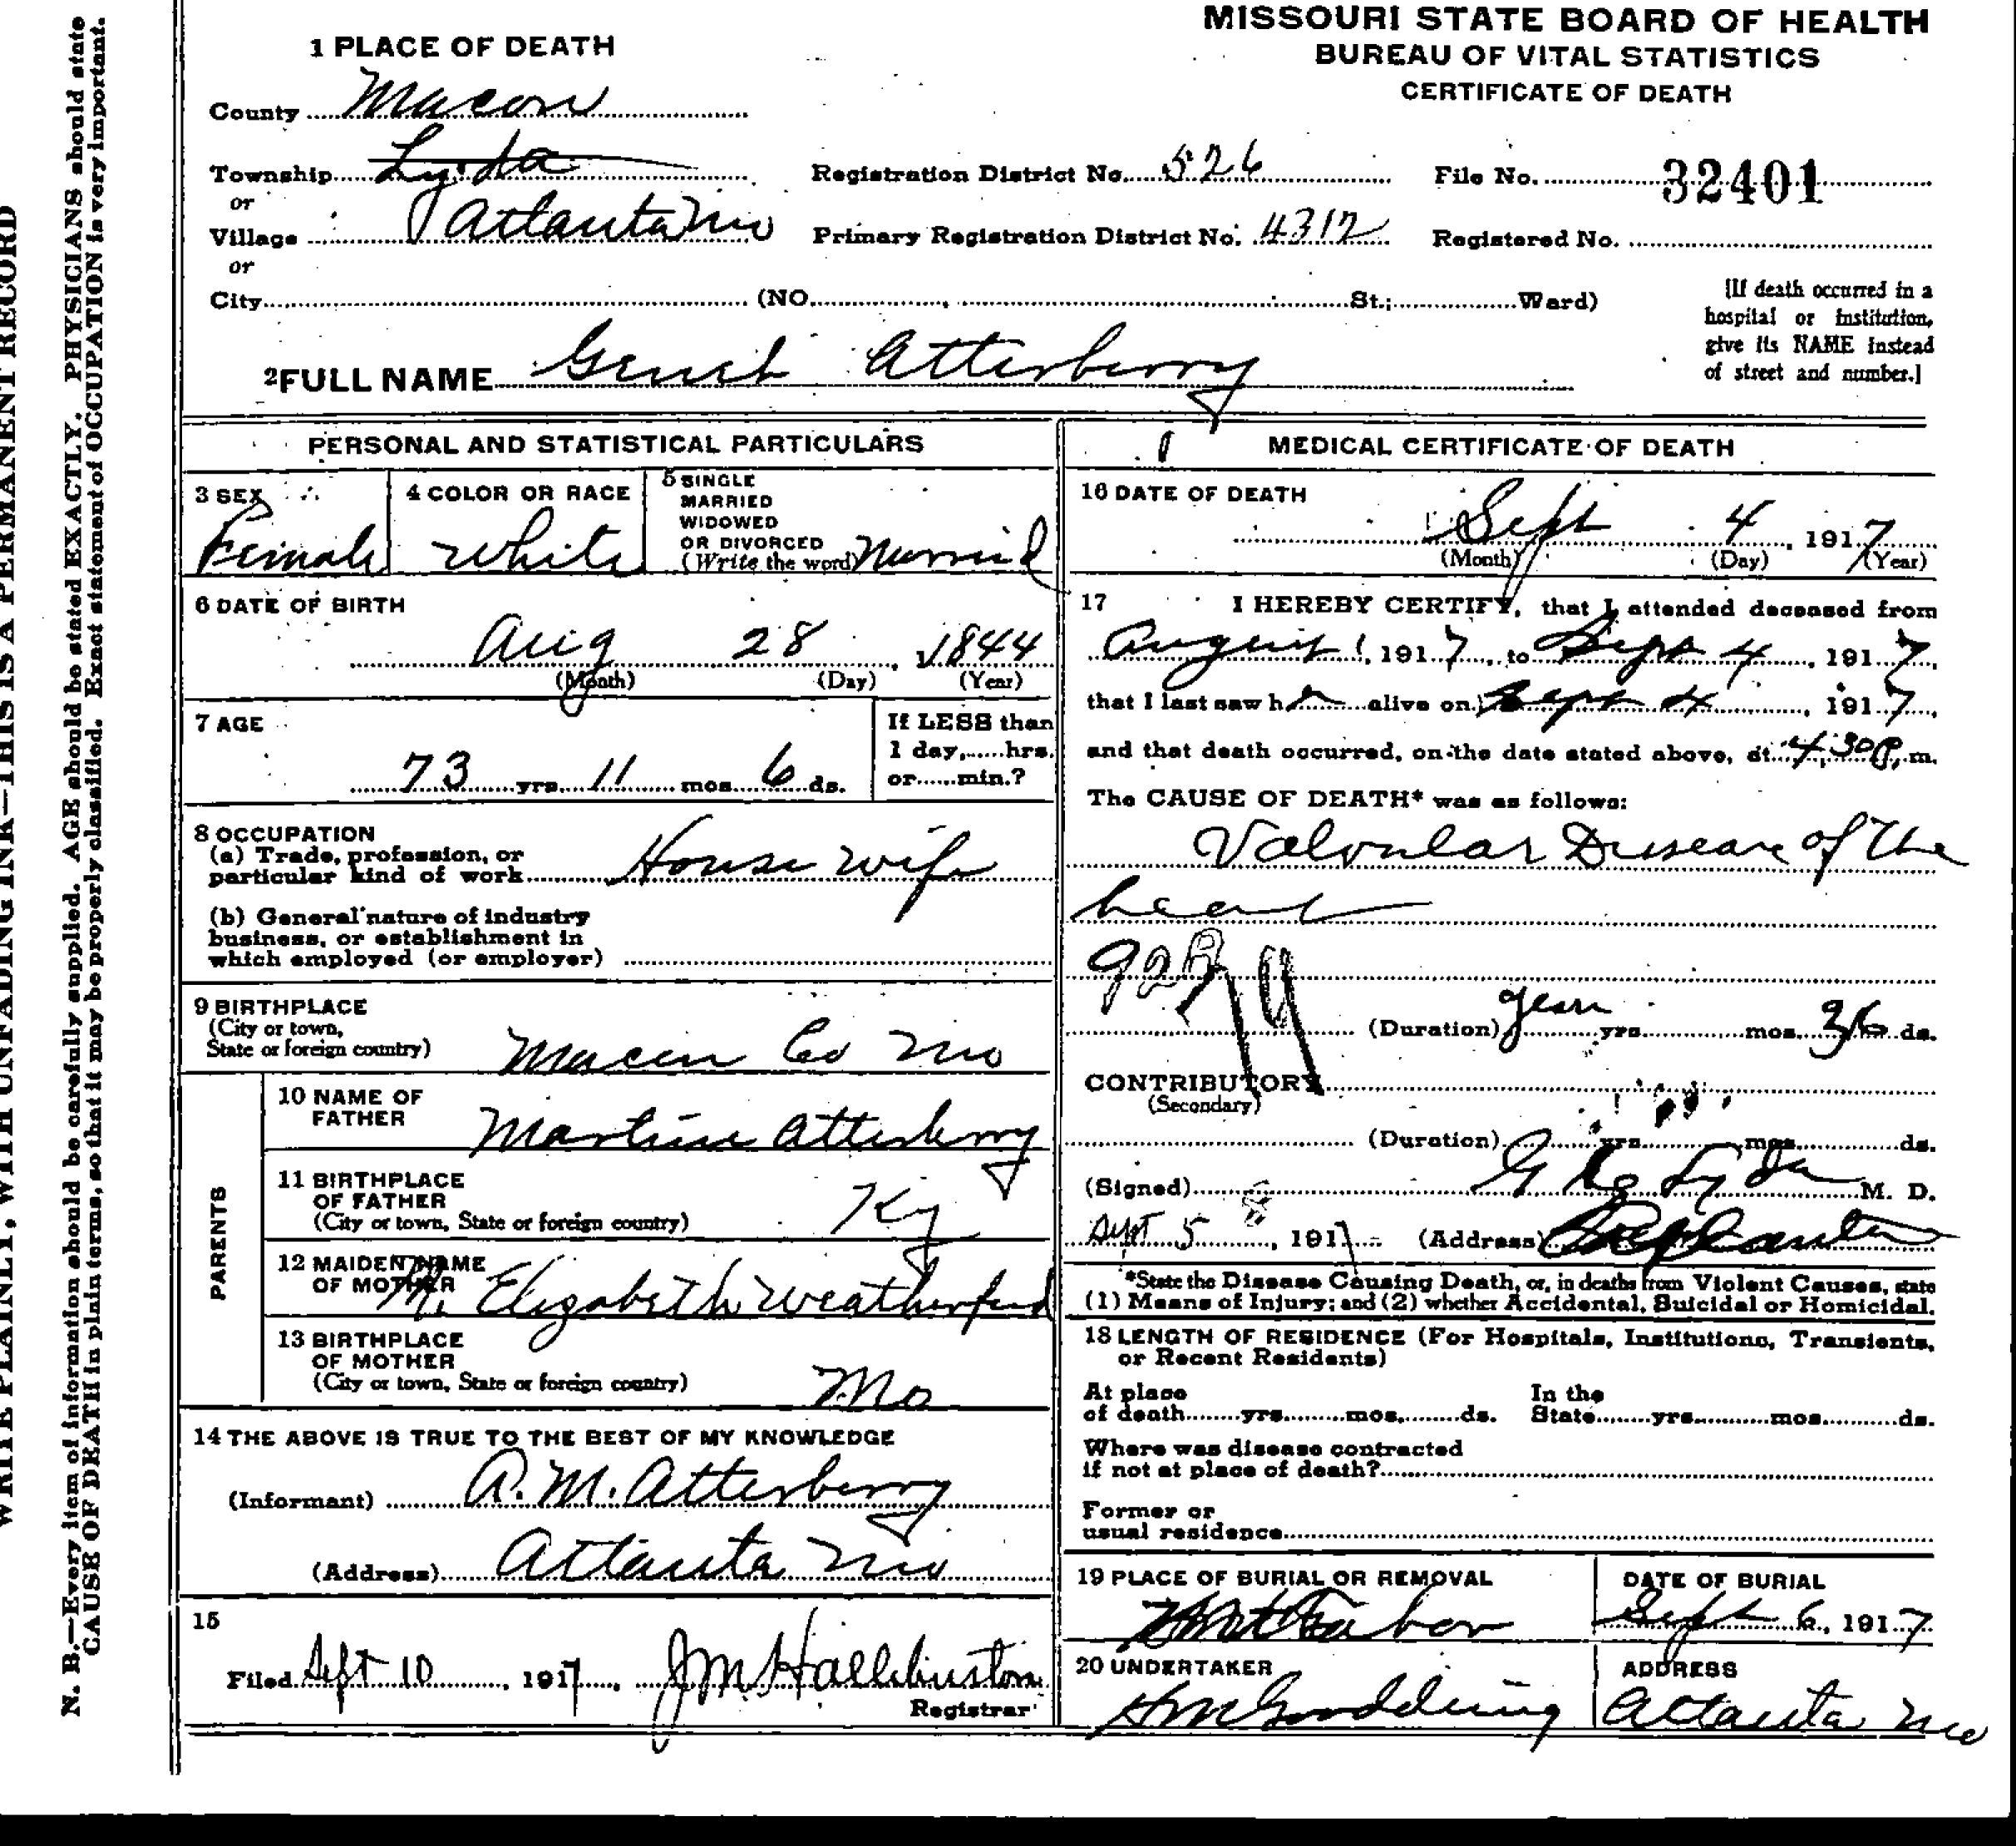 MISSOURI STATE BOARD OF HEALTH
BUREAU OF VITAL STATISTICS
CERTIFICATE OF DEATH
1 PLACE OF DEATH
County Macon
Township Lyda
or
Village Atlanta Mo
or
City (NO. St.; Ward)
Registration District No. 526
Primary Registration District No. 4312
File No. 32401
Registered No.
[If death occurred in a
hospital or institution,
give its NAME instead
of street and number.]
2 FULL NAME Atterberry
PERSONAL AND STATISTICAL PARTICULARS
3 SEX
Female
4 COLOR OR RACE
White
5 SINGLE
MARRIED
WIDOWED
OR DIVORCED
(Write the word) Married
6 DATE OF BIRTH
Aug 28, 1844
(Month) (Day) (Year)
7 AGE
73 yrs. 11 mos. 6 ds.
If LESS than
1 day, hrs.
or min.?
8 OCCUPATION
(a) Trade, profession, or
particular kind of work House wife
(b) General nature of industry
business, or establishment in
which employed (or employer)
9 BIRTHPLACE
(City or town,
State or foreign country) Macon Co Mo
PARENTS
10 NAME OF
FATHER Atterberry
11 BIRTHPLACE
OF FATHER
(City or town, State or foreign country) Ky
12 MAIDEN NAME
OF MOTHER M. Elizabeth Weatherford
13 BIRTHPLACE
OF MOTHER
(City or town, State or foreign country) Mo
14 THE ABOVE IS TRUE TO THE BEST OF MY KNOWLEDGE
(Informant) A. M. Atterberry
(Address) Atlanta Mo
15
Filed Sept 10, 1917, J M Halliburton
Registrar
MEDICAL CERTIFICATE OF DEATH
16 DATE OF DEATH
Sept 4, 1917
(Month) (Day) (Year)
17 I HEREBY CERTIFY, that I attended deceased from
August 1, 1917, to Sept 4, 1917,
that I last saw h alive on Sept 4, 1917,
and that death occurred, on the date stated above, at 4,30 P. m.
The CAUSE OF DEATH* was as follows:
Valvular Disease of the
heart
(Duration) years yrs. mos. 36 ds.
CONTRIBUTORY
(Secondary)
(Duration) yrs. mos. ds.
(Signed) Lyda M. D.
Sept 5, 1917 (Address) Atlanta
*State the Disease Causing Death, or, in deaths from Violent Causes, state
(1) Means of Injury; and (2) whether Accidental, Suicidal or Homicidal.
18 LENGTH OF RESIDENCE (For Hospitals, Institutions, Transients,
or Recent Residents)
At place
of death yrs. mos. ds.
In the
State yrs. mos. ds.
Where was disease contracted
if not at place of death?
Former or
usual residence
19 PLACE OF BURIAL OR REMOVAL
Mt Tabor
DATE OF BURIAL
Sept 6, 1917
20 UNDERTAKER
H M Goodding
ADDRESS
Atlanta Mo
WRITE PLAINLY, WITH UNFADING INK—THIS IS A PERMANENT RECORD
N. B.—Every item of information should be carefully supplied. AGE should be stated EXACTLY. PHYSICIANS should state
CAUSE OF DEATH in plain terms, so that it may be properly classified. Exact statement of OCCUPATION is very important.